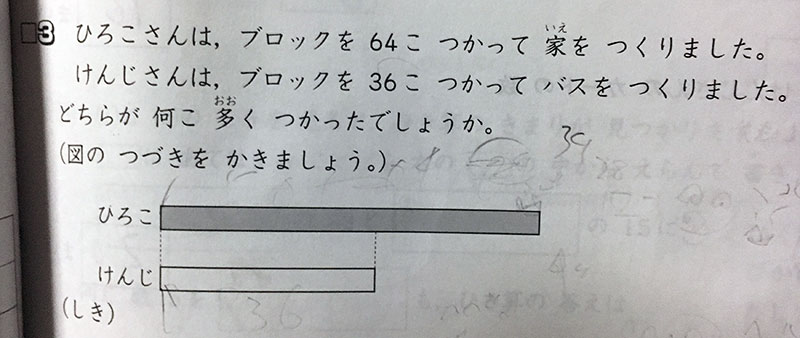 3 ひろこさんは，ブロックを 64こ つかって 家を つくりました。
けんじさんは，ブロックを 36こ つかって バスを つくりました。
どちらが 何こ 多く つかったでしょうか。
(図の つづきを かきましょう。)
ひろこ
けんじ
(しき)
36